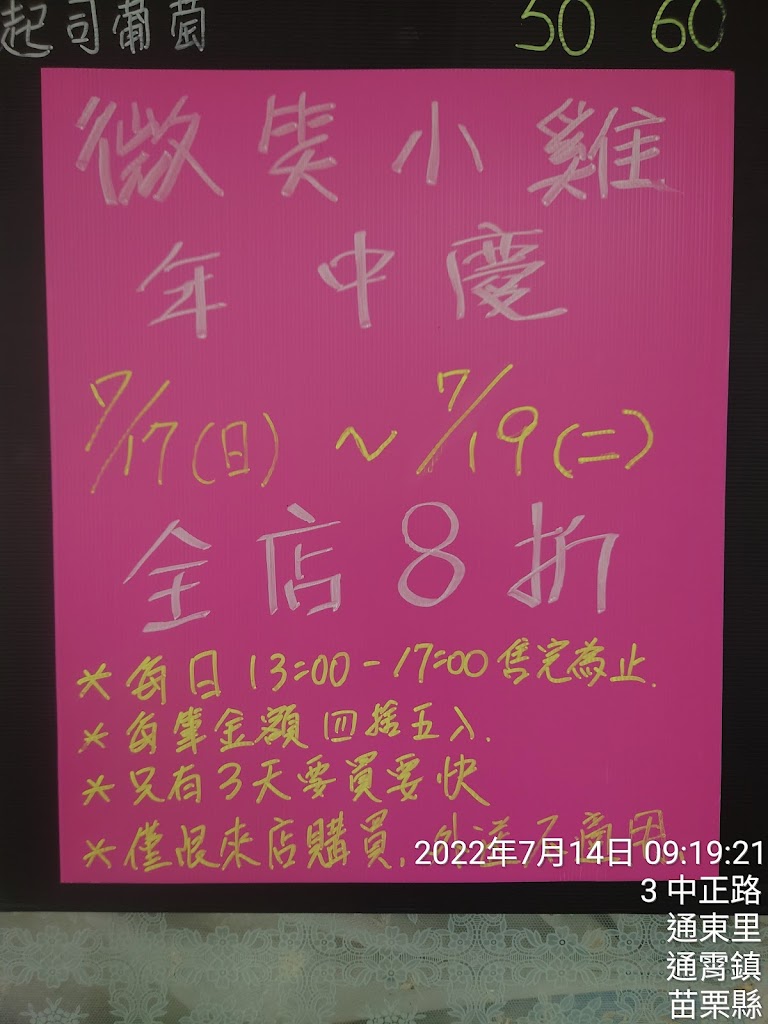 起司葡萄 50 60
微笑小雞
年中慶
7/17(日)~7/19(二)
全店8折
*每日 13:00-17:00售完為止.
*每筆金額四捨五入.
*只有3天要買要快
*僅限來店購買,外送不適用.
2022年7月14日 09:19:21
3 中正路
通東里
通霄鎮
苗栗縣